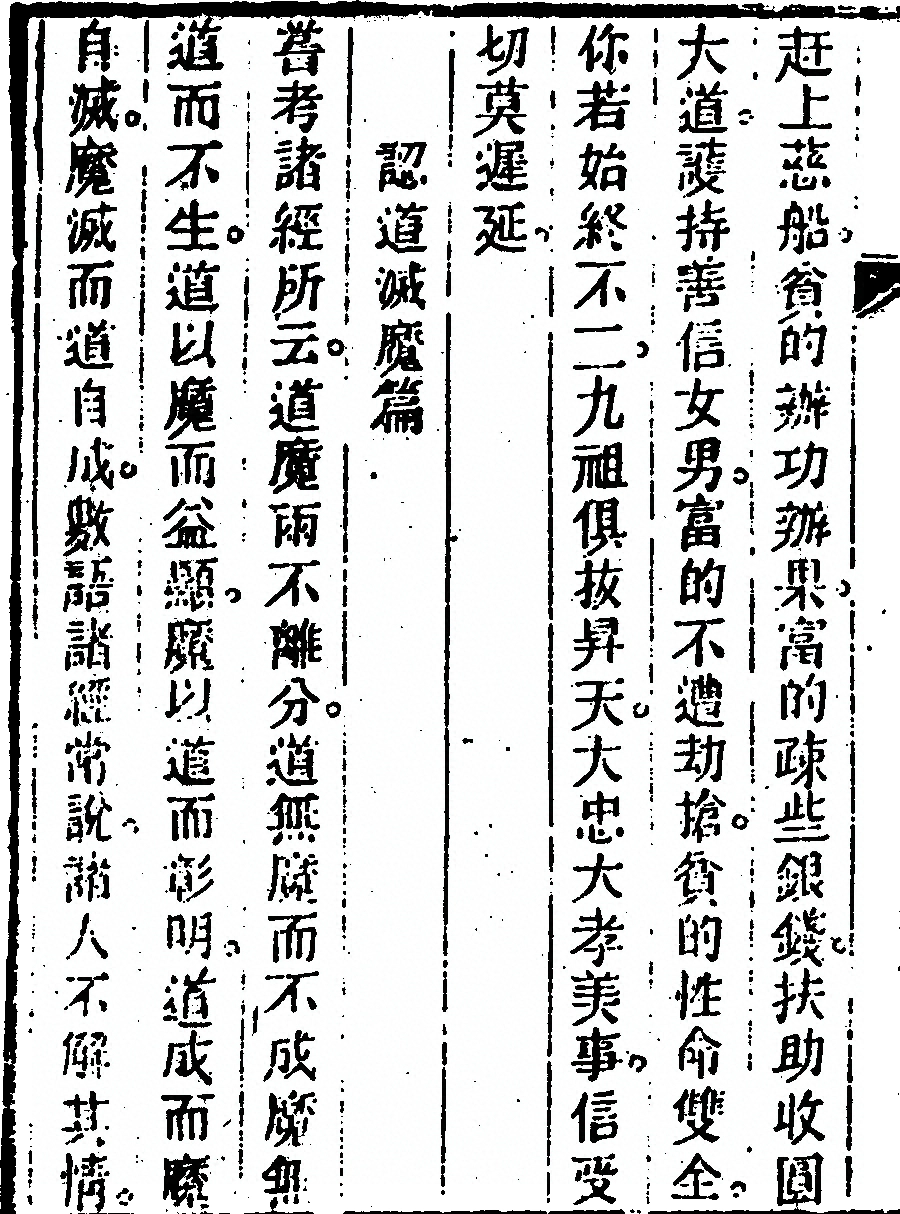 赶上慈船。貧的辦功辦果。富的疎些銀錢。扶助收圓
大道。護持善信女男。富的不遭劫搶。貧的性命雙全。
你若始終不二。九祖俱拔昇天。大忠大孝美事。信受
切莫遲延。
認道滅魔篇
嘗考諸經所云。道魔兩不離分。道無魔而不成魔無
道而不生。道以魔而益顯。魔以道而彰明。道成而魔
自滅。魔滅而道自成。數語諸經常說。諸人不解其情。